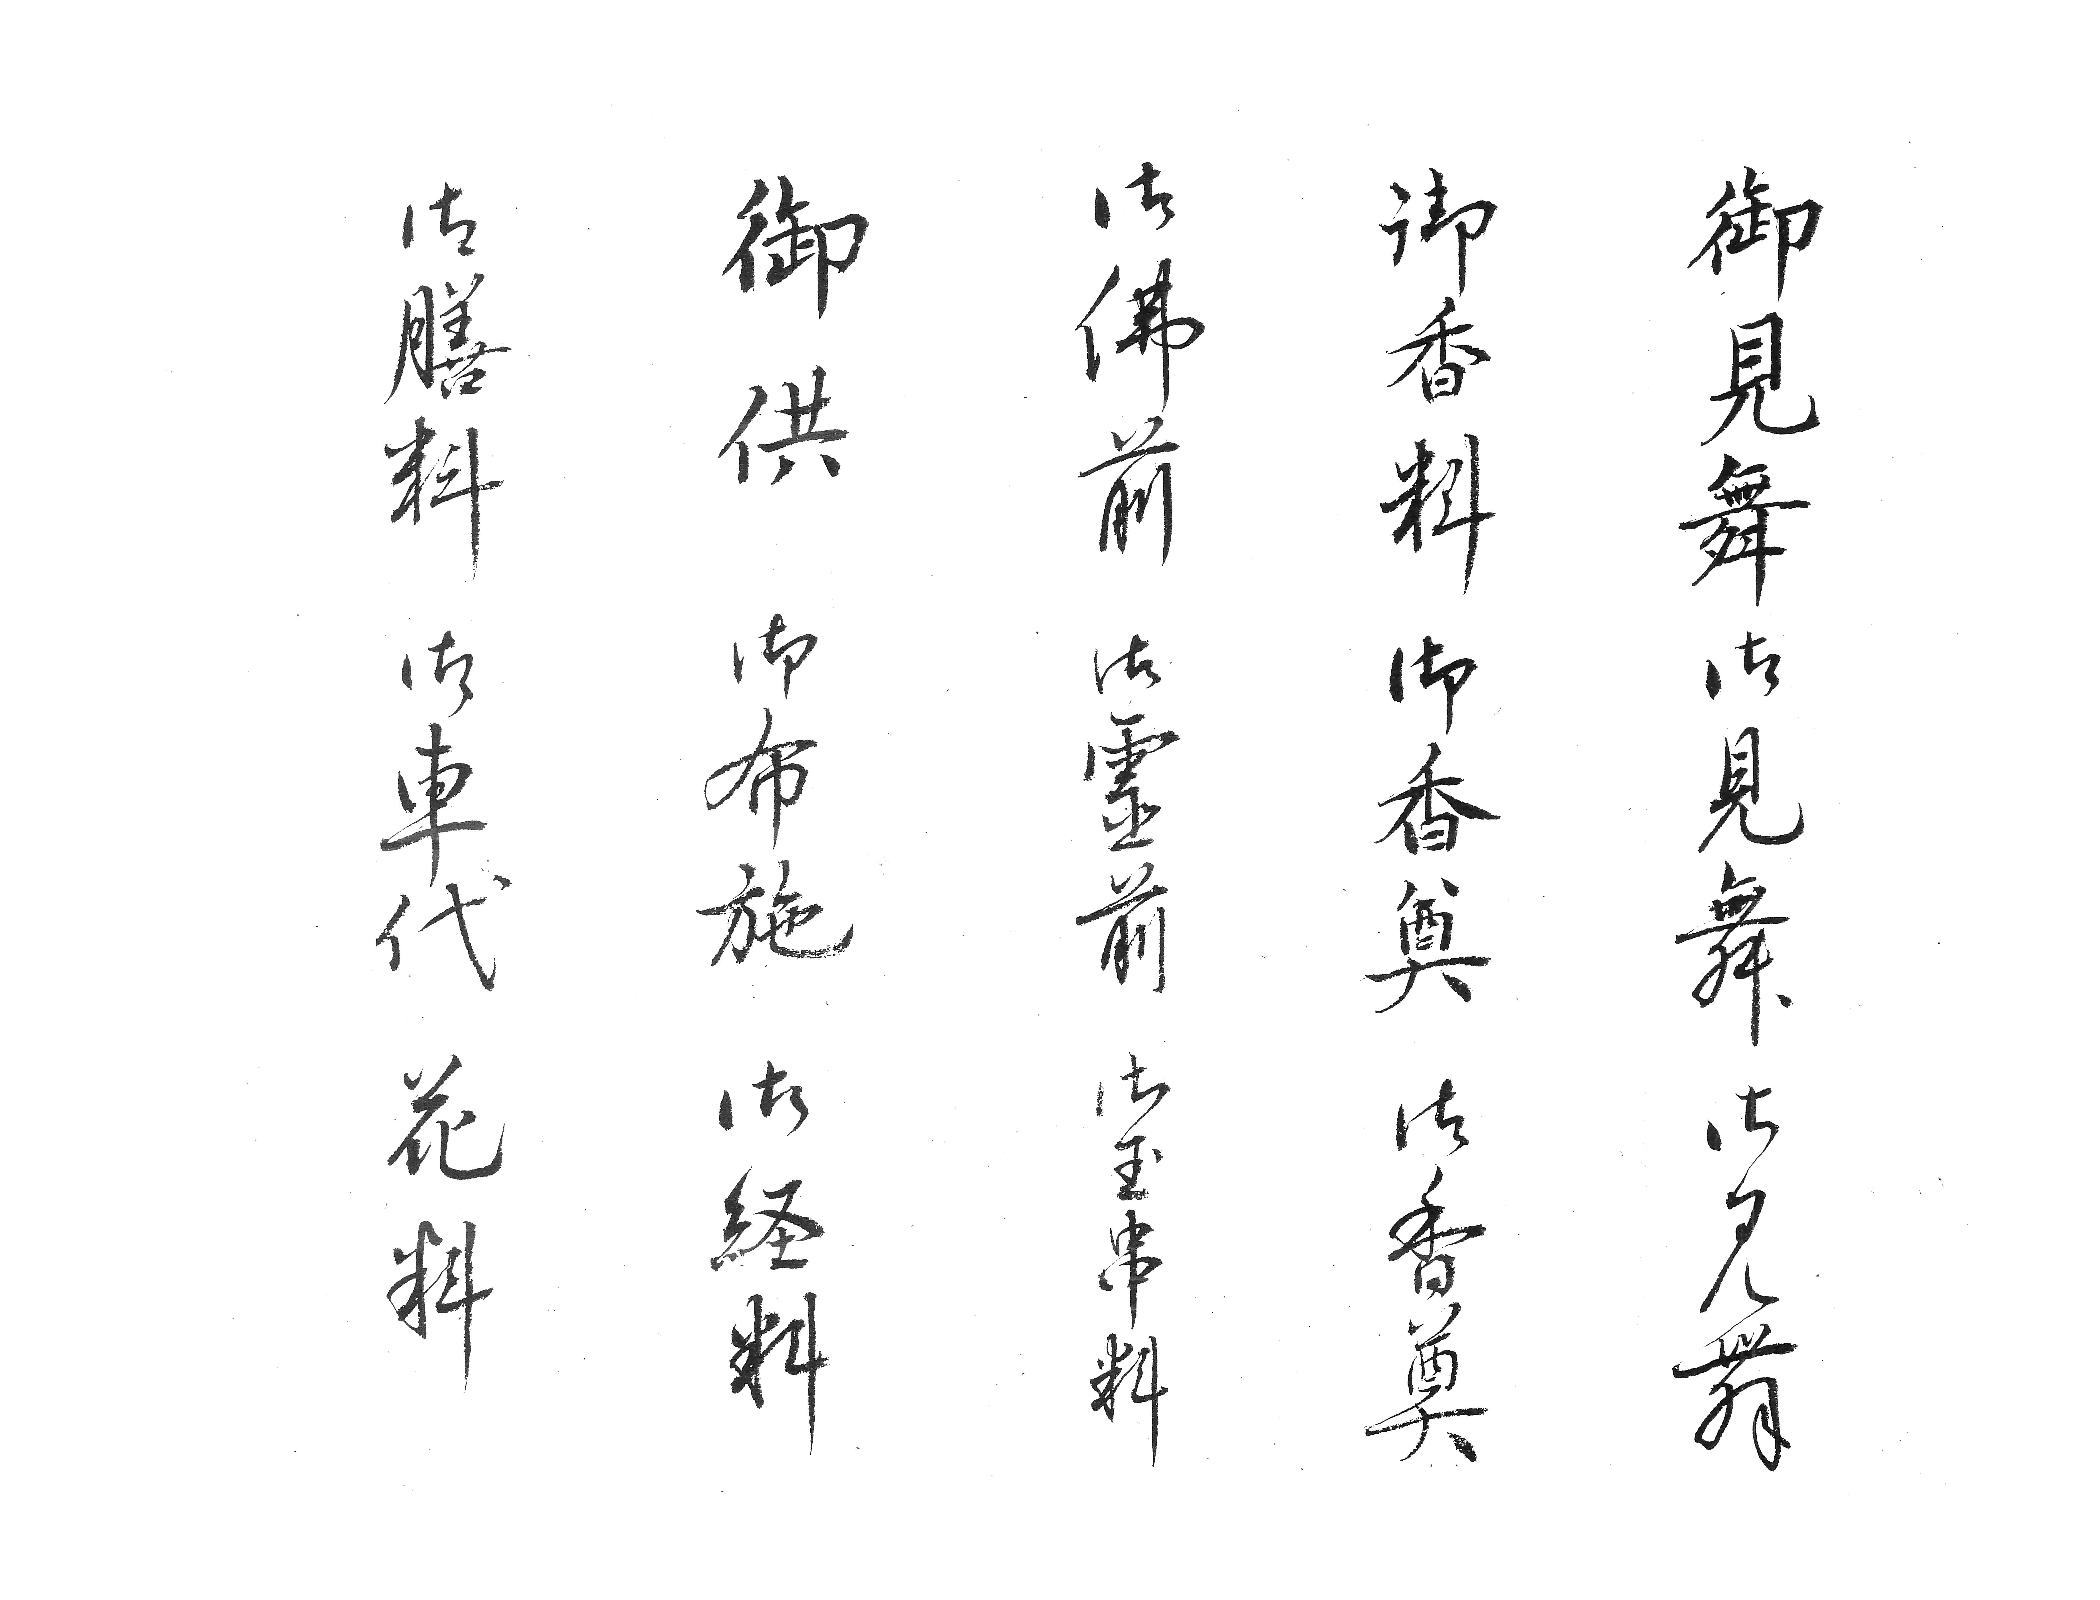 御見舞 御見舞 御見舞
御香料 御香奠 御香奠
御佛前 御靈前 御玉串料
御供 御布施 御経料
御膳料 御車代 花料